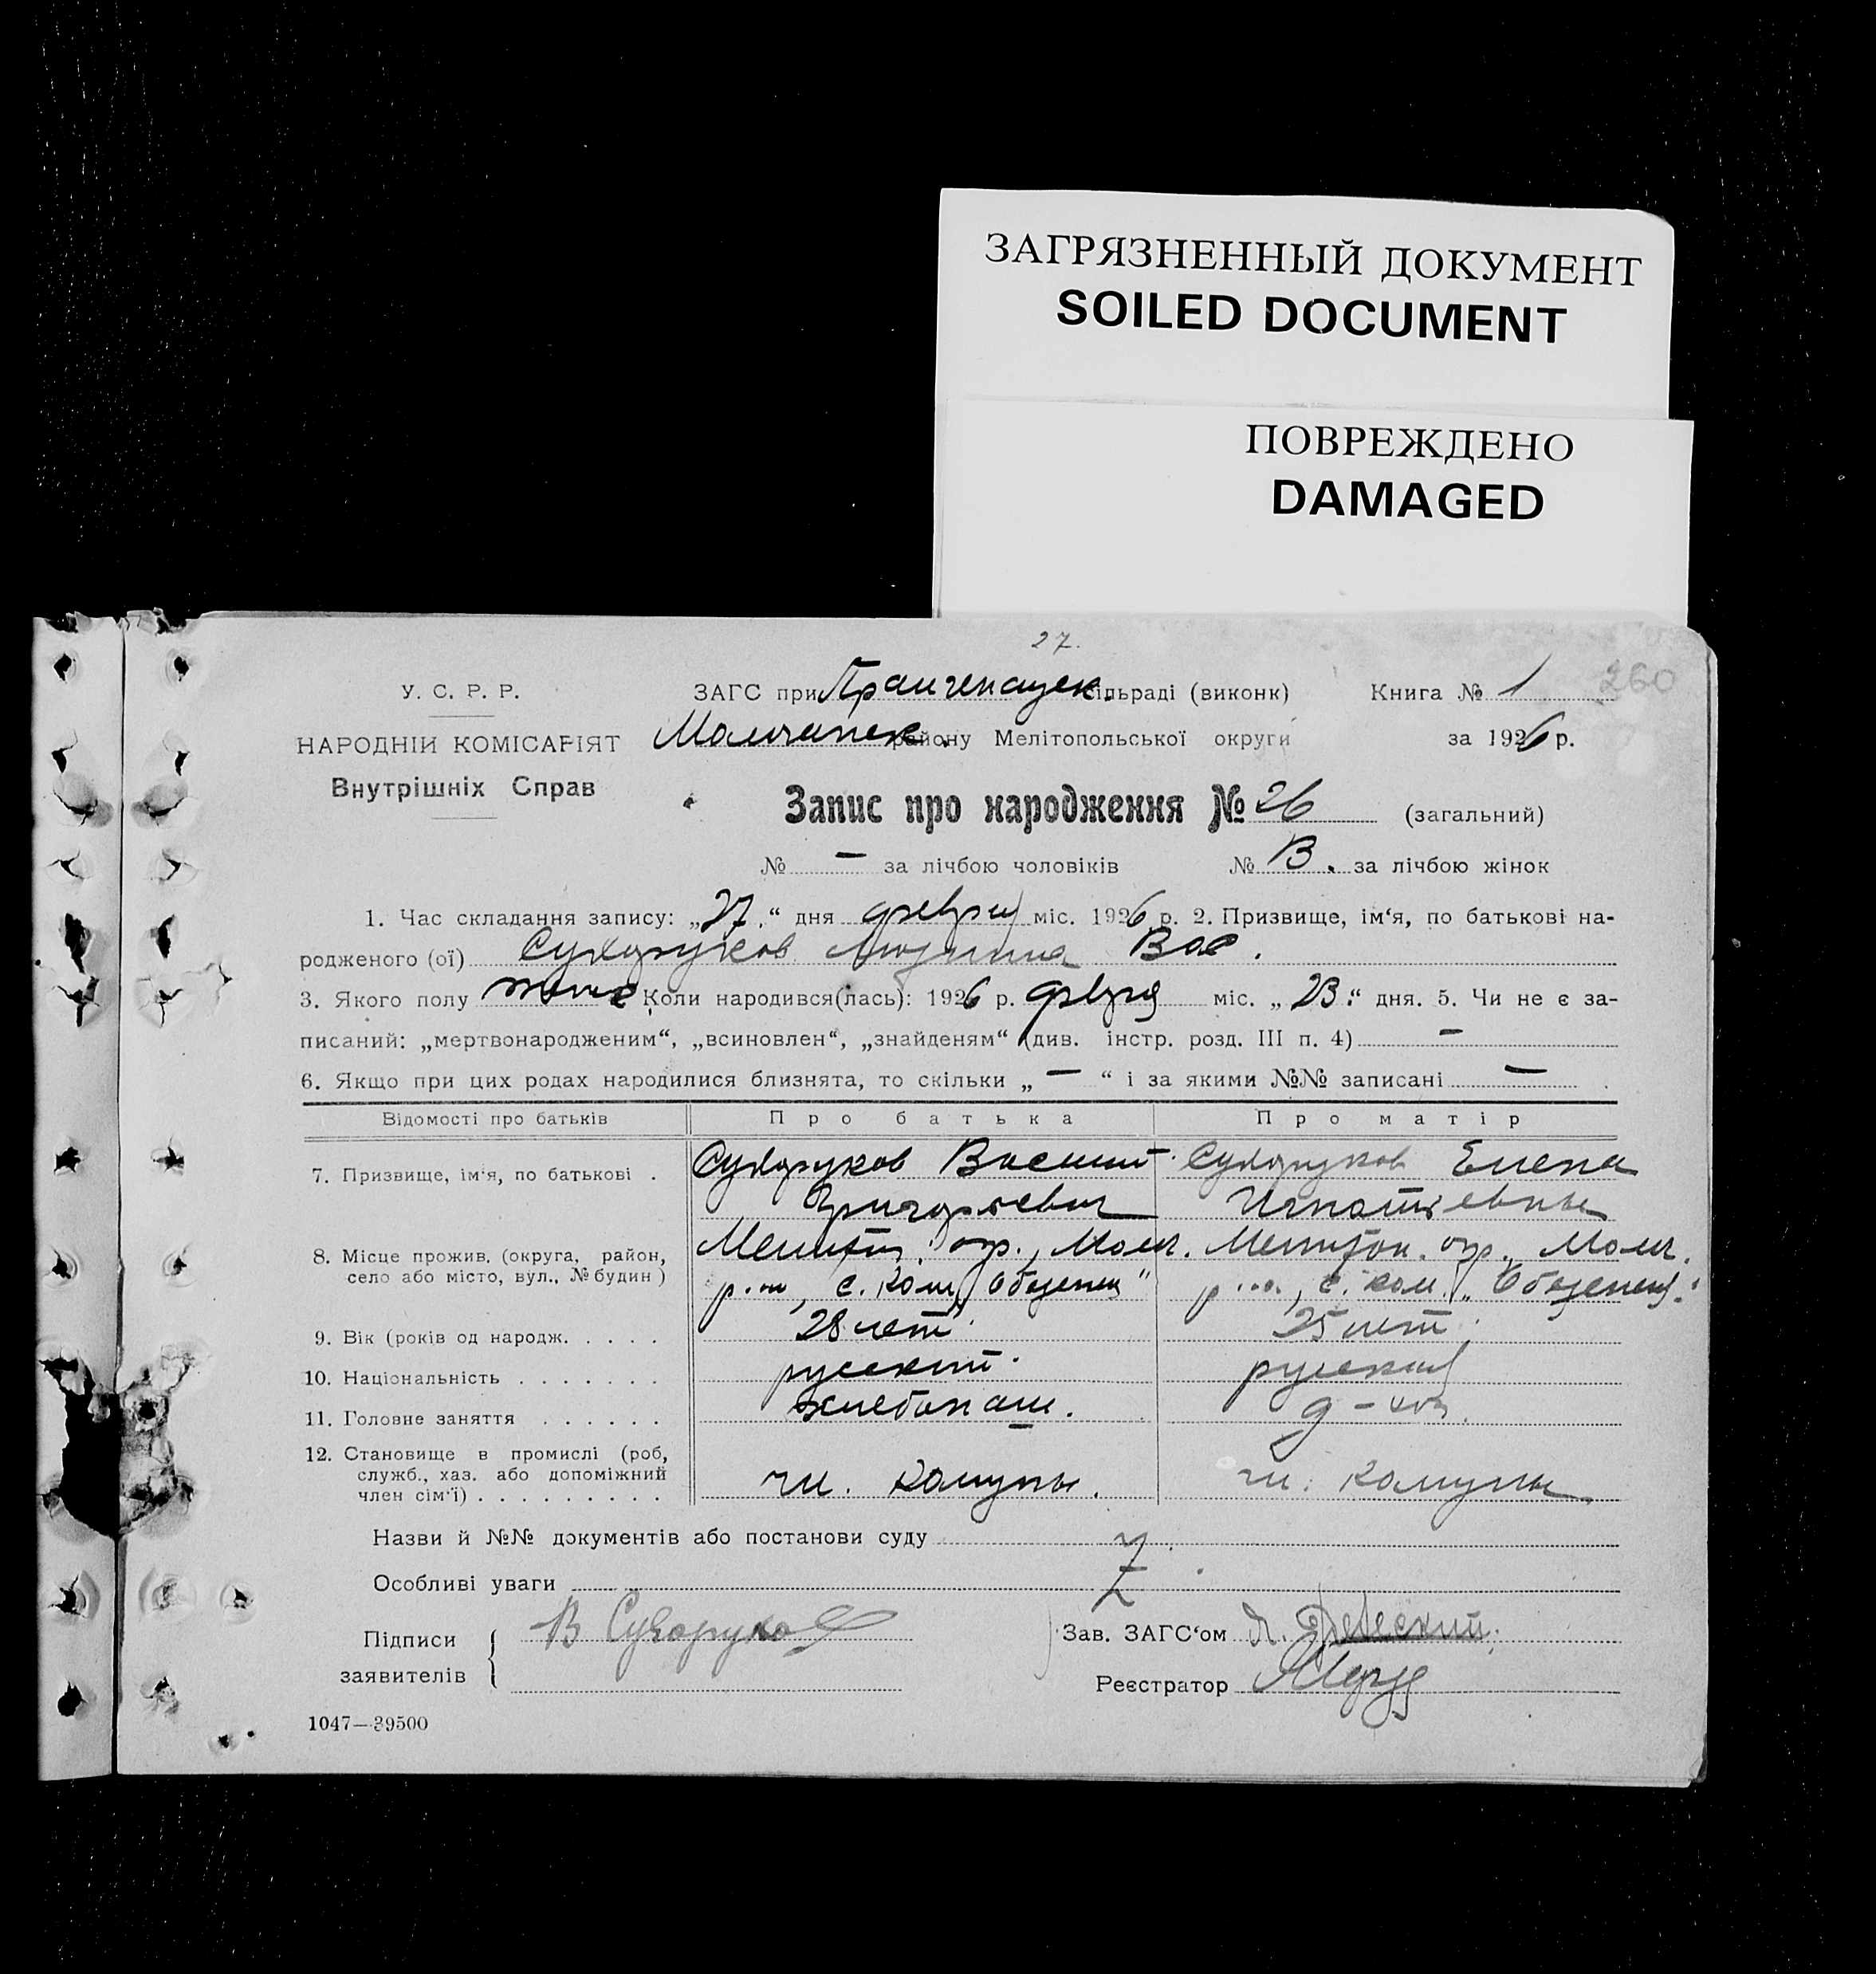 ЗАГРЯЗНЕННЫЙ ДОКУМЕНТ
SOILED DOCUMENT
ПОВРЕЖДЕНО
DAMAGED
27.
260
У. С. Р. Р.
НАРОДНІЙ КОМІСАРІЯТ
Внутрішніх Справ
ЗАГС при сільраді (виконк) Книга № 1
району Мелітопольської округи за 1926 р.
Запис про народження № 26 (загальний)
№ — за лічбою чоловіків № 13. за лічбою жінок
1. Час складання запису: „27.“ дня февраля міс. 1926 р. 2. Призвище, ім'я, по батькові на-
родженого (ої) Сухоруков Вас.
3. Якого полу женс. Коли народився(лась): 1926 р. февраля міс. „23.“ дня. 5. Чи не є за-
писаний: „мертвонародженим“, „всиновлен“, „знайденям“ (див. інстр. розд. III п. 4) —
6. Якщо при цих родах народилися близнята, то скільки „ — “ і за якими №№ записані —
Відомості про батьків Про батька Про матір
7. Призвище, ім'я, по батькові . Сухоруков Василий Григорьевич Сухоруков Елена Игнатьевна
8. Місце прожив. (округа, район, село або місто, вул., № будин) Мелитоп. окр., Молоч. р-н, с. Ком. Мелитоп. окр., Молоч. р-н, с. ком.
9. Вік (років од народж. . . . . 28 лет. 25 лет.
10. Національність . . . . . . . русский. русская
11. Головне заняття . . . . . . хлебопаш. д-хоз.
12. Становище в промислі (роб, служб., хаз. або допоміжний член сім'ї) . . . . . . . . . чл. комуны. чл. комуны
Назви й №№ документів або постанови суду
Особливі уваги
Підписи заявителів В Сухоруков
Зав. ЗАГС'ом
Реєстратор
1047—39500